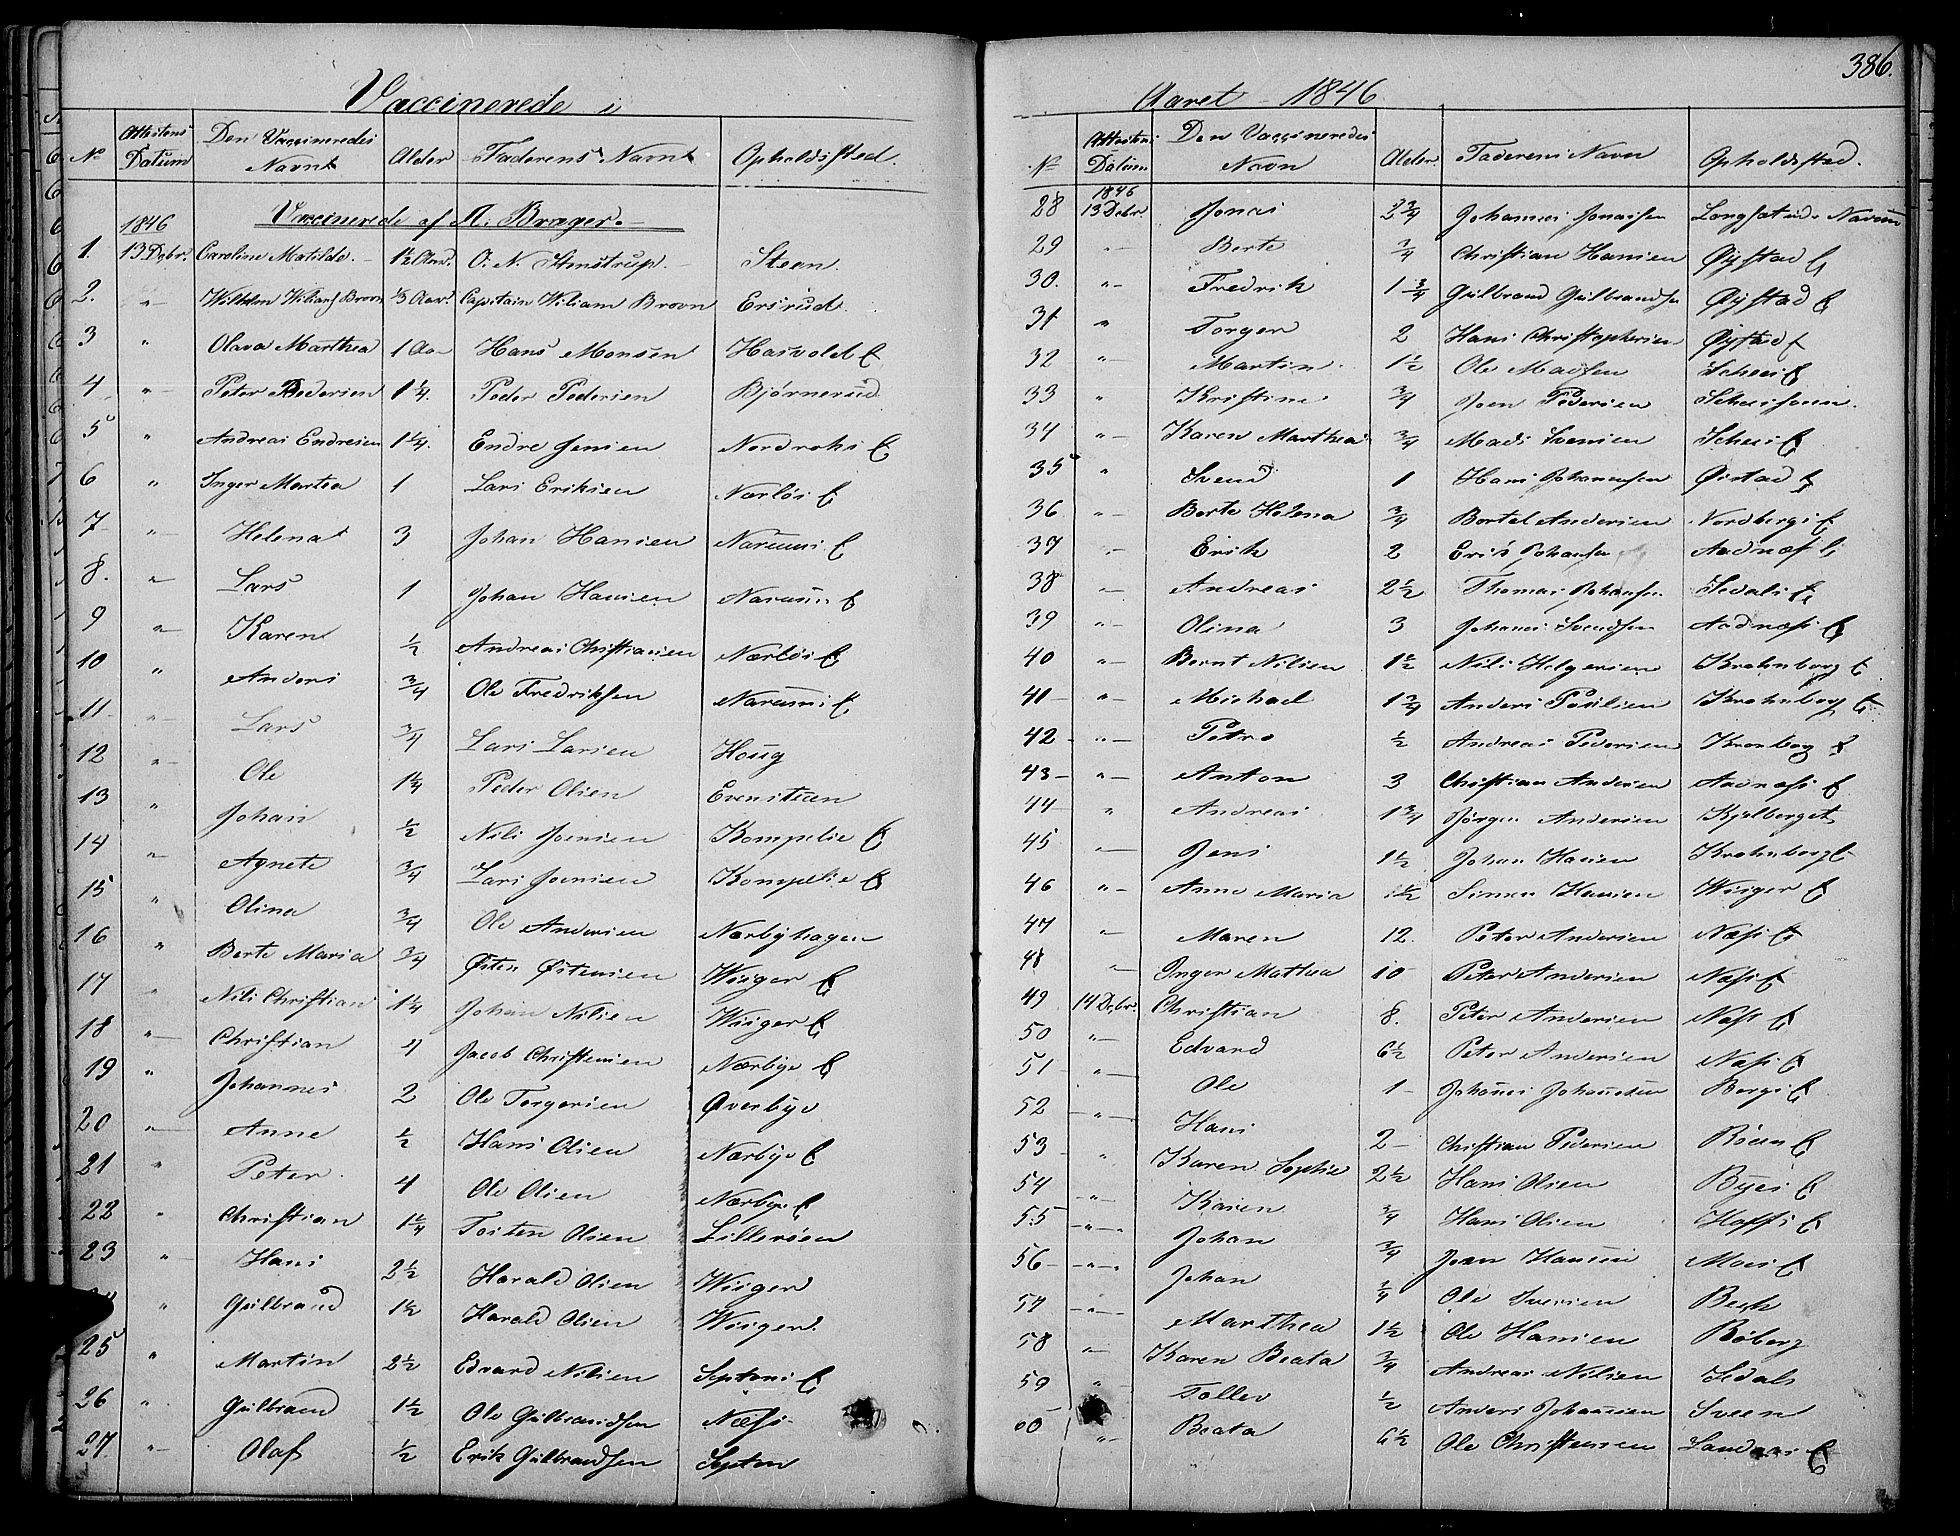 Vaccinerede i
No Attestens Datum Den Vaccineredes Navn Alder Faderens Navn Opholdssted.
1846 Vaccinerede af A. Brager.
1. 13 Debr. Caroline Matilde. 1½ Aar. O. N. Stenstrup. Steen.
2. " Wilhelm Brovn ⅓ Aar. Capitain Wiliam Brovn Ersrud.
3 " Olava Marthea 1 Aar Hans Monsen Hasvold E
4 " Peter Pedersen 1¼. Peder Pedersen Bjørnerud
5 " Andreas Endresen 1¼. Endre Jensen Nordrohs E
6 " Inger Martea 1 Lars Eriksen Nærløs E
7 " Helena 3 Johan Hansen Narums E
8. " Lars 1 Johan Hansen Narums E
9 " Karen ½ Andreas Christiansen Nærløs E
10 " Anders ¾ Ole Fredriksen Narums E
11 " Lars ¾ Lars Larsen Houg
12 " Ole 1½ Peder Olsen Evenstuen
13 " Johan ½ Nils Joensen Kompelie E
14 " Agnete ¾ Lars Joensen Kompelie E
15 " Olina ¾ Ole Andersen Nærbyhagen
16 " Berte Maria ¾ Østen Østensen Wisger E
17 " Nils Christian 1¼ Johan Nilsen Wisger E
18 " Christian 4 Jacob Christensen Nærbye E
19 " Johannes 2 Ole Torgersen Øverbye
20 " Anne ½ Hans Olsen Nærbye E
21 " Peter 4 Ole Olsen Nærbye E
22 " Christian 1¼ Tosten Olsen Lillerøen
23 " Hans 2½ Harald Olsen Wisger
" Gulbrand 1½ Harald Olsen Wisger
25 " Martin 2½ Edvard Nilsen Septons E
26 " Gulbrand 1½ Ole Gulbrandsen Næss
27. " Olaf ½ Erik Gulbrandsen Septon
386.
Aaret 1846
No Attestens Datum Den Vaccineredes Navn Alder Faderens Navn Opholdsstad.
1846
28 13 Debr. Jonas 2¾ Johannes Jonassen Narum
29 " Berte ¾ Christian Hansen Øystad E
30. " Fredrik 1¾ Gulbrand Gulbrandsen Øystad E
31 " Torger 2 Hans Christophersen Øystad E
32 " Martin 1½ Ole Madsen Schees E
33 " Kristine ¾ Joen Pedersen
34 " Karen Marthea ¾ Mads Svensen Schees E
35 " Svend 1 Hans Johannesen Øistad E
36 " Berte Helena ¾ Bertel Andersen Nordbergs E
37 " Erik 2 Johansen Aadnæs E
38 " Andreas 2½ Thomas Johansen Sedals E
39 " Olina 3 Johanes Svendsen Aadnæss E
40 " Bernt Nilsen 1½ Nils Helgersen Krohnborg E
41 " Michael 1¾ Anders Krohnborg E
42 " Petro ½ Andreas Pedersen Kronborg E
43 " Anton 3 Christian Andersen Aadnæss E
44 " Andreas 1¾ Jørgen Andersen Kjølberget
45 " Jens 1½ Johan Hansen Krohnborg E
46 " Anne Maria 1½ Simen Hansen Wisger E
47 " Maren 12. Peter Andersen Næss E
48 " Inger Mathea 10 Peter Andersen Næss E
49 14 Debr. Christian 8. Peter Andersen Næss E
50 " Edvard 6½ Peter Andersen Næss E
51 " Ole 1 Johanes Johannesen Bergs E
52 " Hans 2 Christian Pedersen Røen E
53 " Karen Sophie 2½ Hans Olsen Byes E
54 " Karen ¾ Hans Olsen Hoffs E
55 " Johan ¾ Joen Hansen Moes E
56 " Johan ¾ Ole Iversen Bech
57 " Marthea 1½ Ole Hansen Røberg
58 " Karen Beata ¾ Andreas Nilsen Sedals
59 " Tollev ½ Anders Johannesen Sveen
60 " Beata 6½ Ole Christensen E